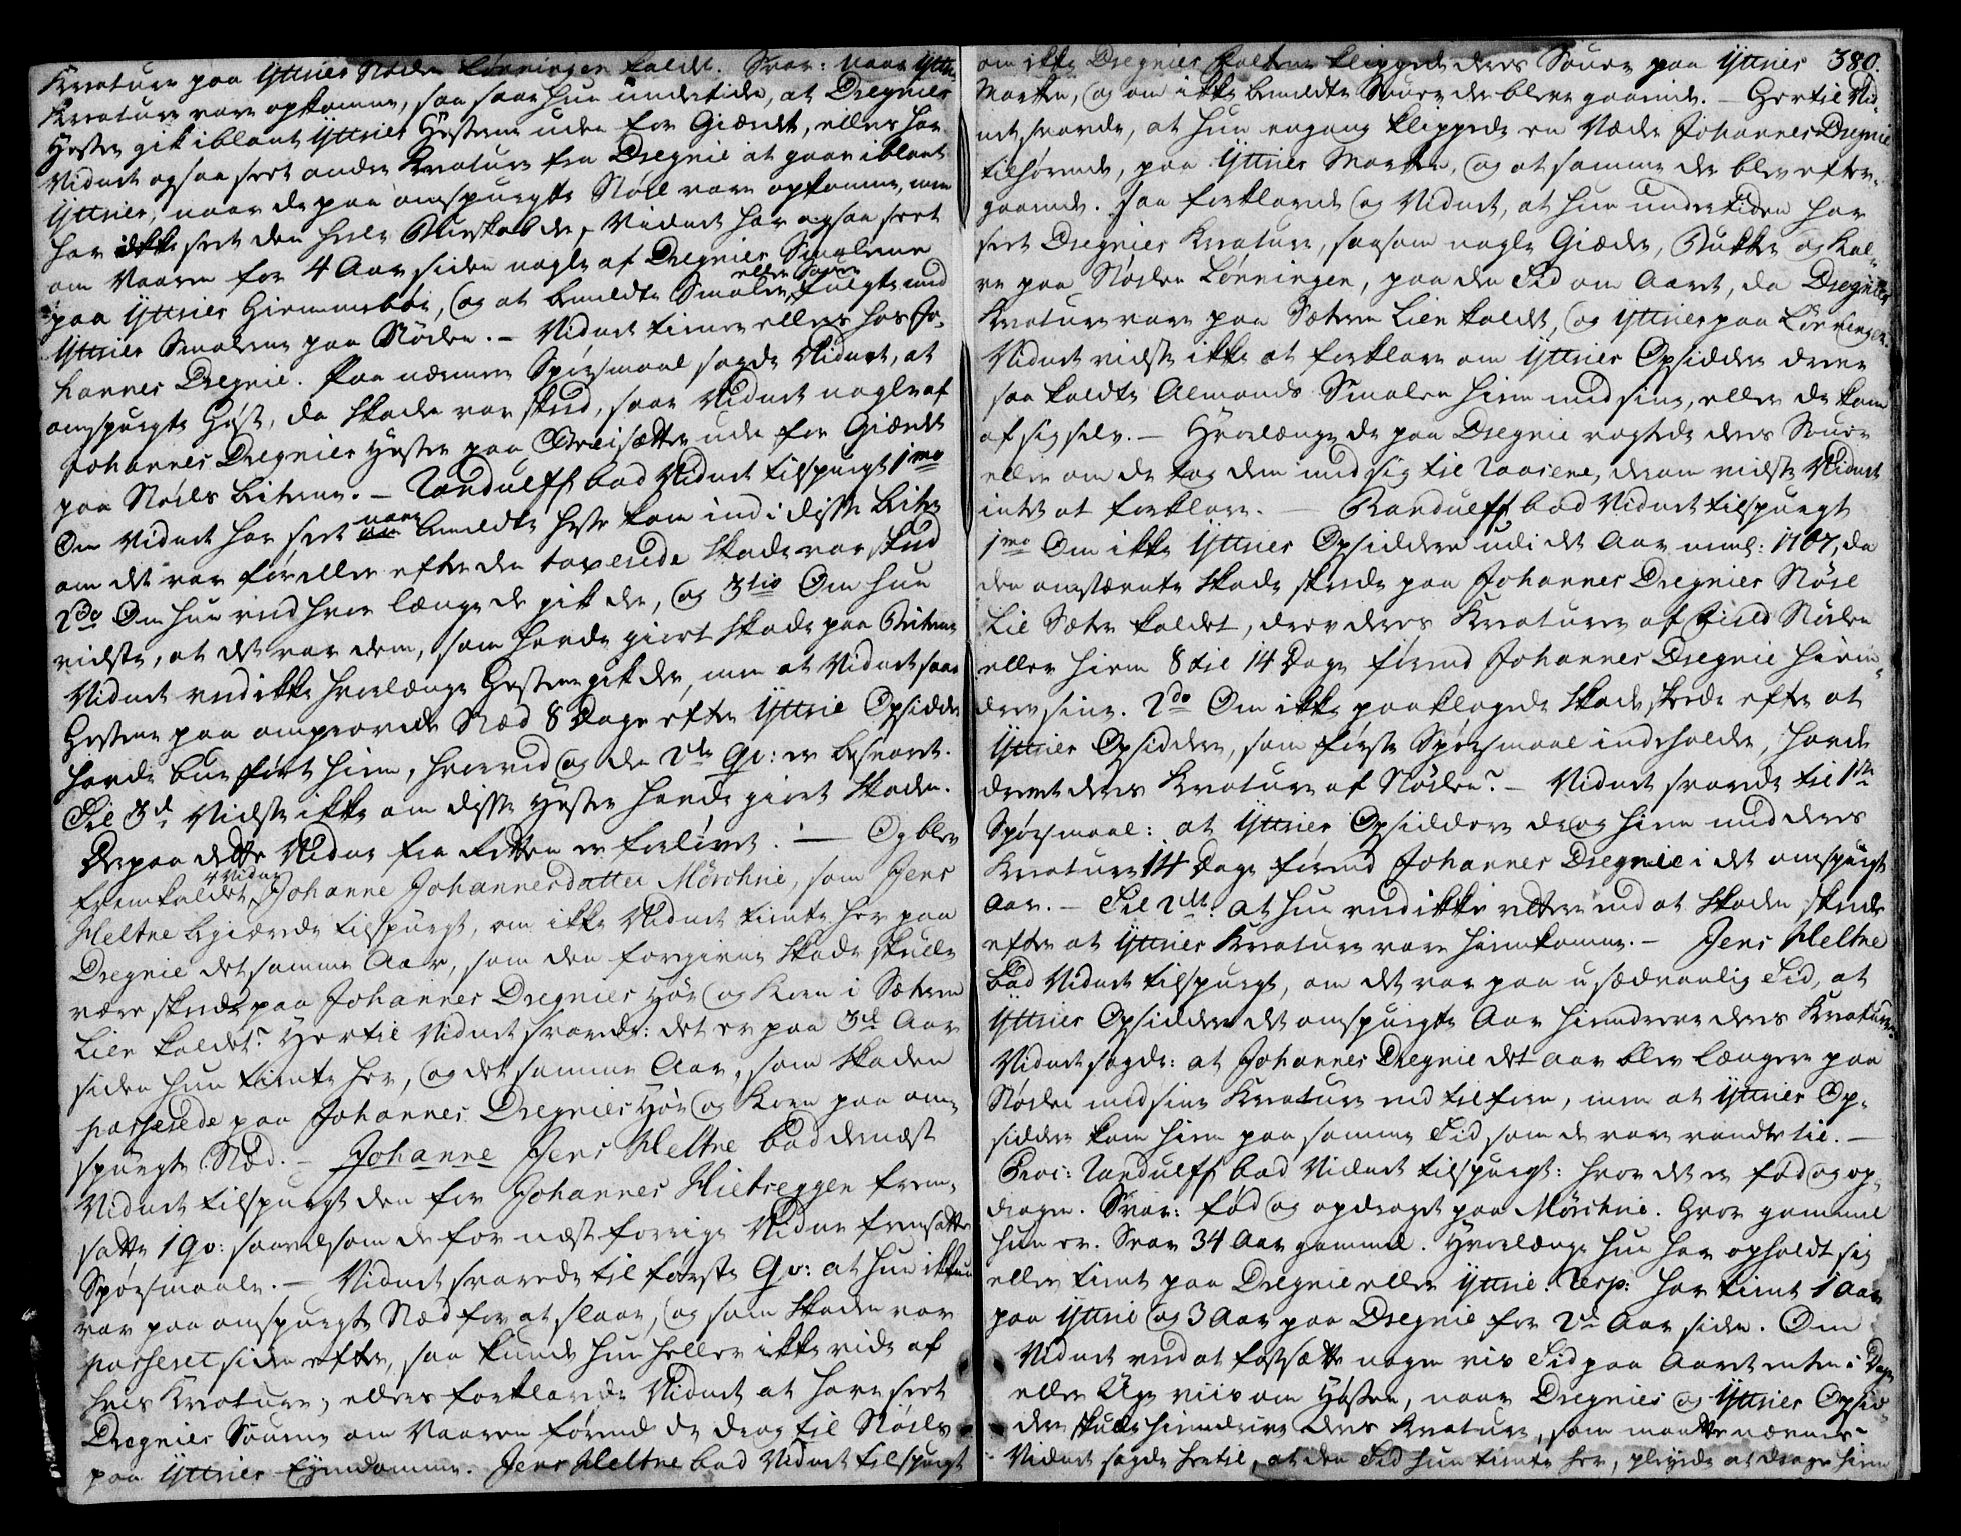 Kreature paa Yttries Stølen Lønningen kaldet. Svar: naar Yttr:
Kreature vare opkomne, saa saae hun undertiden, at Dregnies
Heste gik iblant Yttries Hestene uden for Giærdet, ellers har
Vidnet ogsaa seet andre Kreature fra Dregnie at gaae iblant
Yttries, naar de paa omspurgte Støel vare opkomne, men
har ikke seet den heele Buskab der, Vidnet har ogsaa seet
om Vaaren for 4 Aar siden nogle af Dregnies Smalene
paa Yttries Hiemmebøe, og at bemeldte Smaler eller Souer fulgte med
Yttries Smalene paa Stølen. – Vidnet tiener ellers hos Jo-
hannes Dregnie. Paa nærmere Spørsmaal sagde Vidnet, at
omspurgte Høst, da Skaden var skeed, saae Vidnet nogle af
Johannes Dregnies Heste paa Breisætte uden for Giærdet
paa Støels Beitene. – Randulff bad Vidnet tilspurgt 1mo
Om Vidnet har seet naar bemeldte Heste kom ind i disse Beiter
om det var før eller efter den taxerede Skade var skeed
2do Om hun veed hvor længe de gik der, og 3tio Om hun
vidste, at det var dem, som havde giort Skade paa Beitene
Vidnet veed ikke hvorlænge Hestene gik der, men at Vidnet saae
Hestene paa omprovede Stæd 8 Dage efter Yttrie Opsidder
havde bueført hiem, hvorved og den 2de Qv: er besvaret.
Til 3de Vidste ikke om disse Heste havde giort Skaden.
Derpaa dette Vidne fra Retten er forløvet. – Og blev
fremkaldet 4 Vidne Johanne Johannesdatter Mörchrie, som Jens
Heltne begiærede tilspurgt, om ikke Vidnet tiente her paa
Dregnie det samme Aar, som den foregivne Skade skulle
være skeede paa Johannes Dregnies Høe og Korn i Sæteren
Lien kaldet? Hertil Vidnet svarede: det er paa 3de Aar
siden hun tiente her, og det samme Aar, som Skaden
passerede paa Johannes Dregnies Høe og Korn paa om-
spurgte Stæd. – Johanne Jens Heltne bad dernæst
Vidnet tilspurgt den for Johannes Hietreggen frem-
satte 1 Qv: saavelsom de for næst forrige Vidne fremsatte
Spørsmaale. – Vidnet svarede til første Qv: at hun ikke
var paa omspurgte Stæd for at slaae, og som Skaden var
passeret siden efter, saa kunde hun heller ikke vide af
hvis Kreature; ellers forklarede Vidnet at have seet
Dregnies Souene om Vaaren førend de drog til Støels
paa Yttries Eyendomme. Jens Heltne bad Vidnet tilspurgt
om ikke Dregnies Folkene klippede deres Souer paa Yttries 380.
Marken, og om ikke bemeldte Souer der bleve gaaende. – Hertil Vid-
net svarede, at hun engang klippede en Væder Johannes Dregnie
tilhørende, paa Yttries Marken, og at samme der blev efter-
gaaende. saa forklarede og Vidnet, at hun undertiden har
seet Dregnies Kreature, saasom nogle Gieder, Bukke og Kal-
ve paa Stølen Lønningen, paa den Tid om Aaret, da Dregnies
Kreature vare paa Sæteren Lien kaldet, og Yttries paa Lønningen.
Vidnet vidste ikke at forklare om Yttries Opsiddere drev
saa kaldte Almonds Smalen hiem med sine, eller de kom
af sig selv. – Hvorlænge de paa Dregnie vogtede deres Souer
eller om de tog dem med sig til Raasene, derom vidste Vidnet
intet at forklare. – Randulff bad Vidnet tilspurgt
1mo Om ikke Yttries Opsiddere udi det Aar neml: 1767, da
den omstævnte Skade skeede paa Johannes Dregnies Støel
Lie Sæter kaldet, drev deres Kreature af Field Stølen
eller hiem 8 til 14 Dage førend Johannes Dregnie hiem-
drev sine. 2do Om ikke paaklagede Skade skeede efter at
Yttries Opsiddere, som første Spørsmaal indeholder, havde
drevet deres Kreature af Stølen? – Vidnet svarede til 1ste
Spørsmaal: at Yttries Opsiddere drog hiem med deres
Kreature 14 Dage førend Johannes Dregnie i det omspurgte
Aar. – Til 2det: at hun veed ikke rettere end at Skaden skeede
efter at Yttries Kreature vare hiemkomne. – Jens Heltne
bad Vidnet tilspurgt, om det var paa usædvanlig Tid, at
Yttries Opsiddere det omspurgte Aar hiemdreve deres Kreature.
Vidnet sagde: at Johannes Dregnie det Aar blev længere paa
Stølen med sine Kreature end tilforn, men at Yttries Op-
siddere kom hiem paa samme Tid som de vare vandte til. –
Proc: Randulff bad Vidnet tilspurgt: hvor det er fød og op-
dragen. Svar: fød og opdraget paa Mörchrie. Hvor gammel
hun er. Svar 34 Aar gammel. Hvorlænge hun har opholdt sig
eller tient paa Dregnie eller Yttrie. Resp: har tient 1 Aar
paa Yttrie og 3 Aar paa Dregnie for 2de Aar siden. Om
Vidnet veed at fastsætte nogen vis Tid paa Aaret enten i Dage
eller Uge viis om Høsten, naar Dregnies og Yttries Opsid-
dere skulle hiemdrive deres Kreature, som maatte nævnes
Vidnet sagde hertil, at den Tid hun tiente her, pleyede at drage hiem